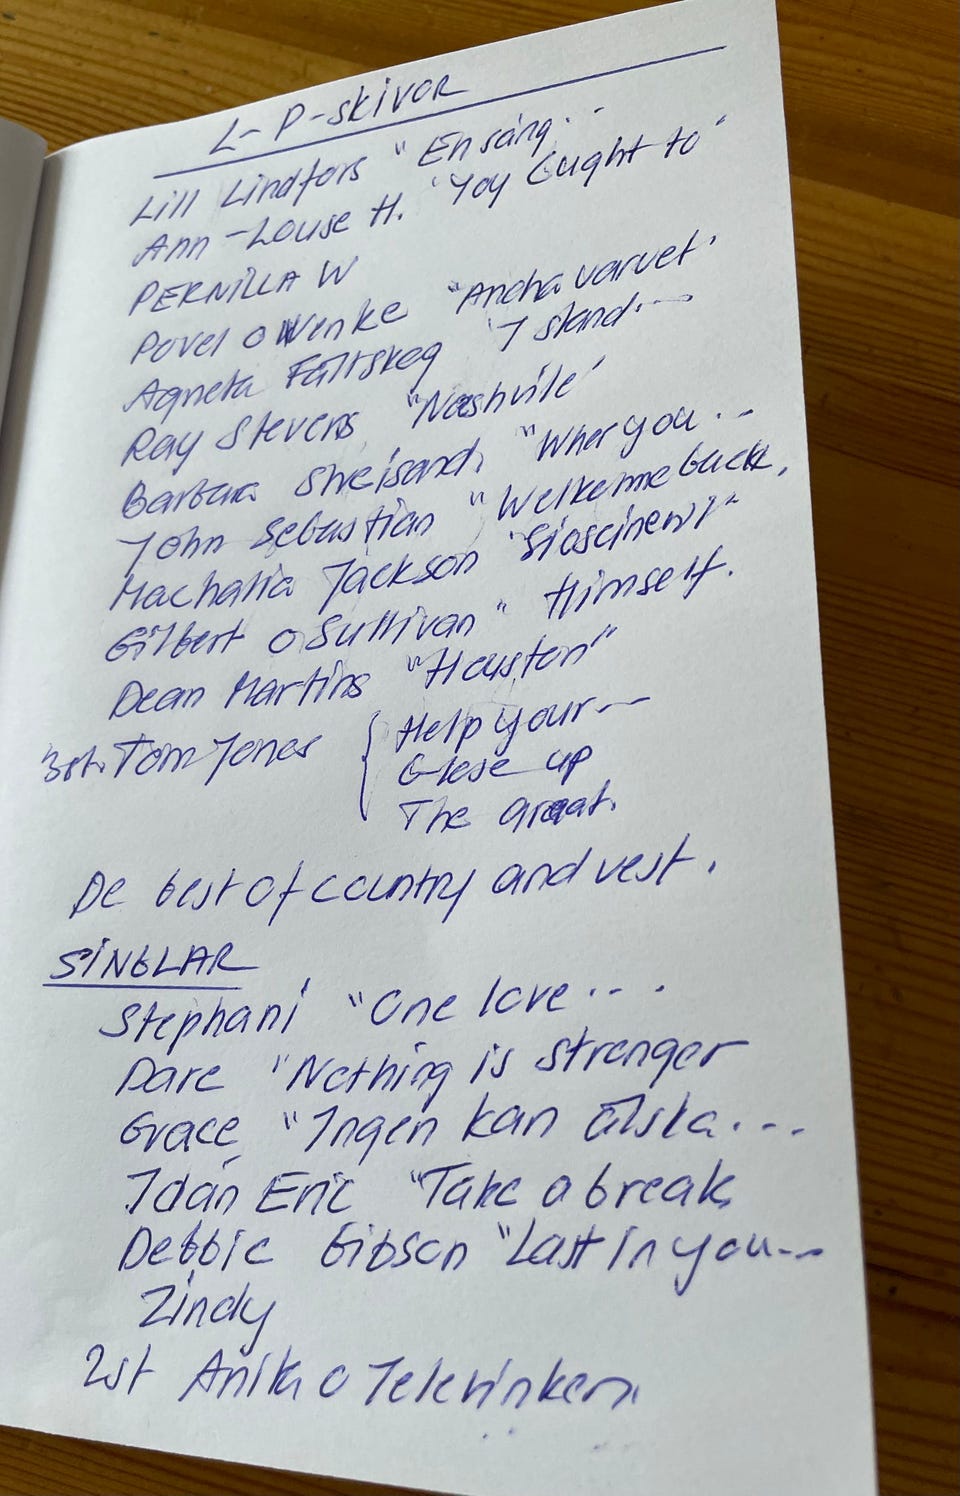 L-P-skivor
Lill Lindfors "En sång...
Ann-Louse H. "Yoy Ought to"
PERNILLA W
Povel o Wenke "Andra varvet.
Agneta Fältskog "I stand...
Ray Stevens "Nashvile"
Barbara Streisand, "When you...
John Sebastian "Welkomme back,
Machalia Jackson
Gilbert o Sullivan "Himself.
Dean Martins "Houston"
3st. Tom Jones { Help your--
Close up
The Great.
De best of country and vest.
SINGLAR
Stephani "One love...
Dare "Nothing is stronger
Grace "Ingen kan älska...
Idán Eric "Take a break
Debbie Gibson "Last in you...
Zindy
2st Anita o Televinken